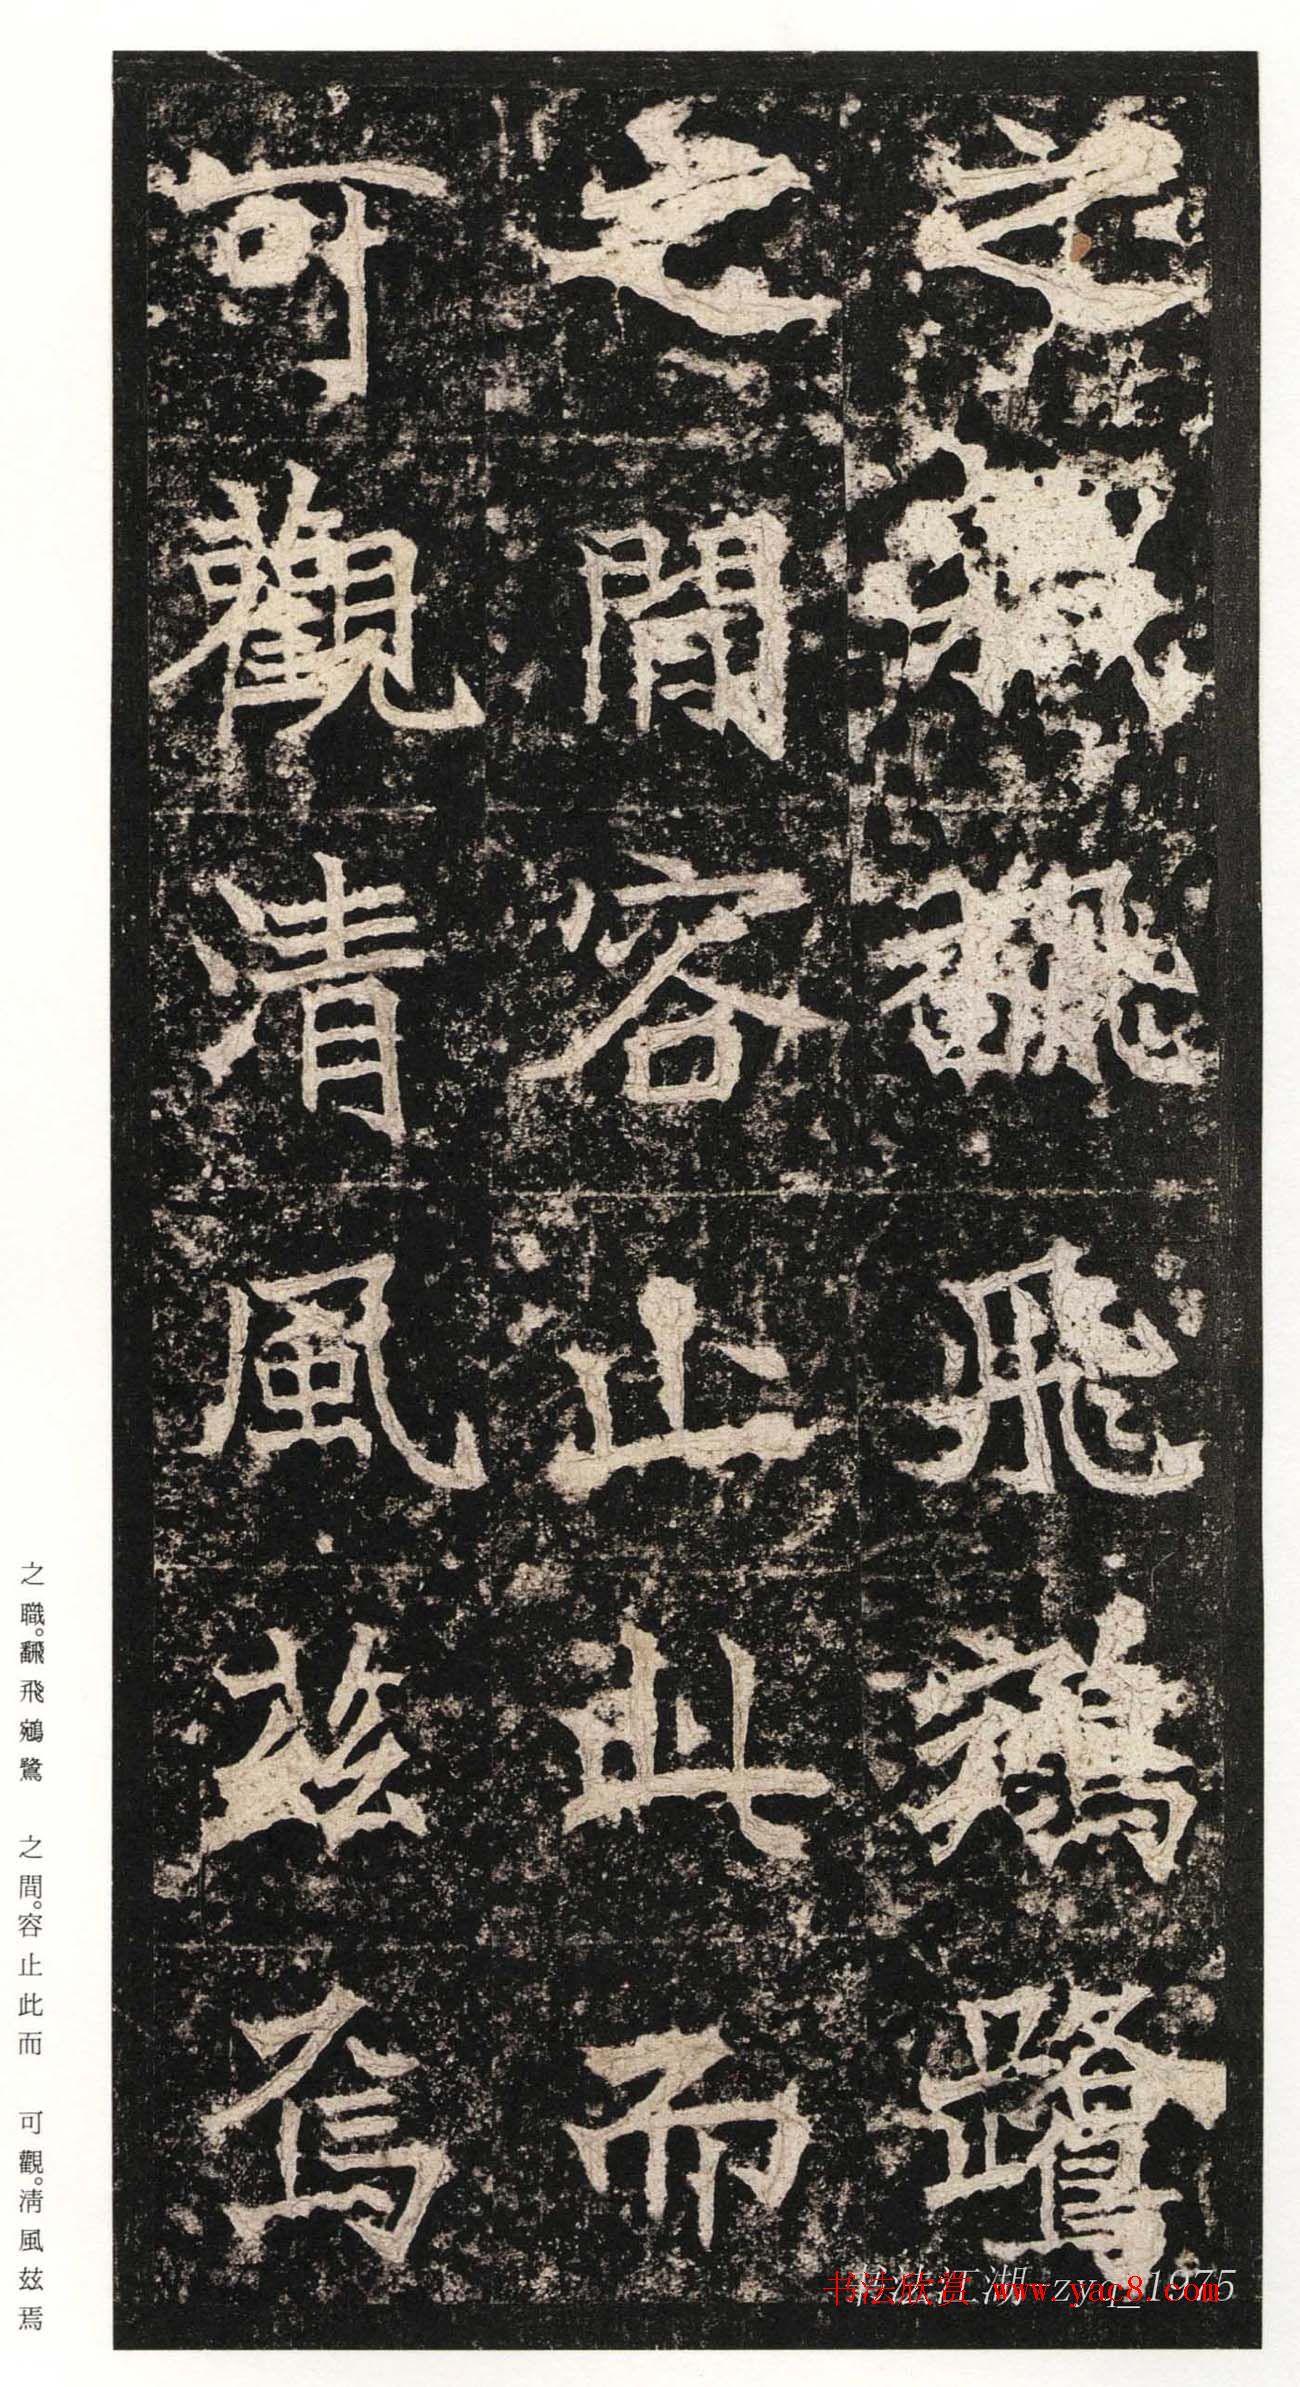 之職飜飛鵷鷺
之間容止此而
可觀清風茲焉
之職。飜飛鵷鷺 之間。容止此而 可觀。清風茲焉
书法欣赏 www.zyac8.com
zyq_1975